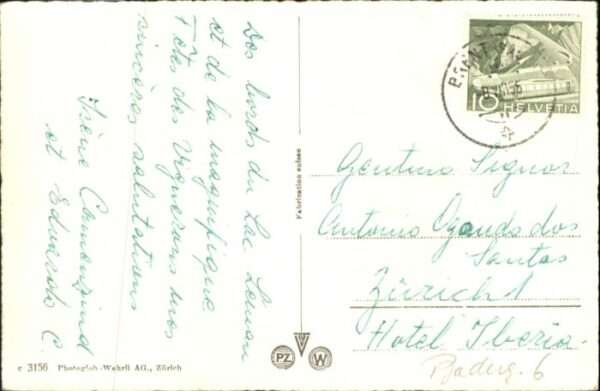 Des bords du Lac Leman
et de la magnifique
Fêtes des Vignerons nos
sincères salutations
Irène Camenzind
et Eduardo C
Fabrication suisse
10 HELVETIA
Gentmo Signor
Antonio
dos
Santos
Zürich 1
Hotel Iberia
Baderg. 6
c 3156 Photoglob-Wehrli AG., Zürich
PZ W